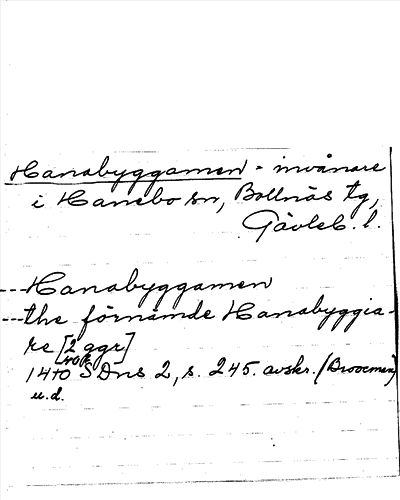 Hanabyggamen - invånare
i Hanebo sn, Bollnäs tg,
Gävleb. l.
---Hanabyggamen
---the förnämde Hanabyggia-
re [2 ggr]
1440 SDns 2, s. 245. avskr. (Brocman)
u.d.